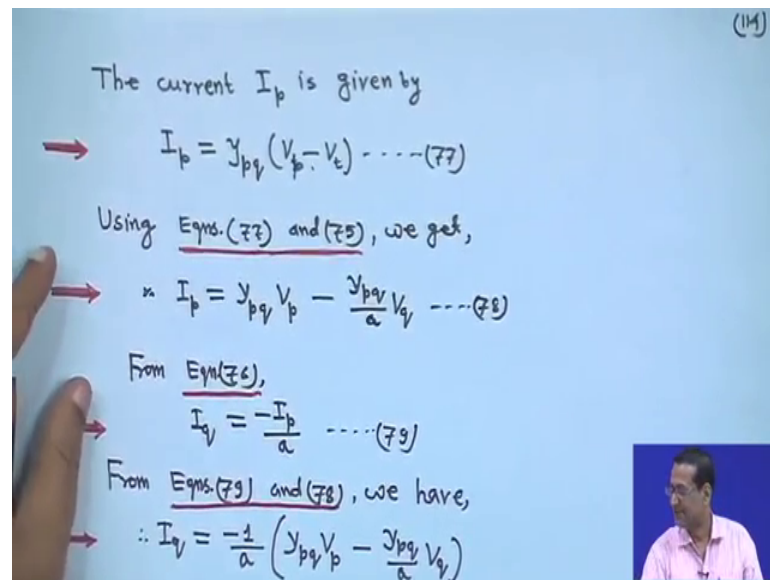 (114)
The current I_p is given by
I_p = y_pq (V_p - V_t) ----- (77)
Using Eqns.(77) and (75), we get,
∴ I_p = y_pq V_p - y_pq/a V_q ---- (78)
From Eqn(76),
I_q = -I_p/a ..... (79)
From Eqns.(79) and (78), we have,
∴ I_q = -1/a (y_pq V_p - y_pq/a V_q)